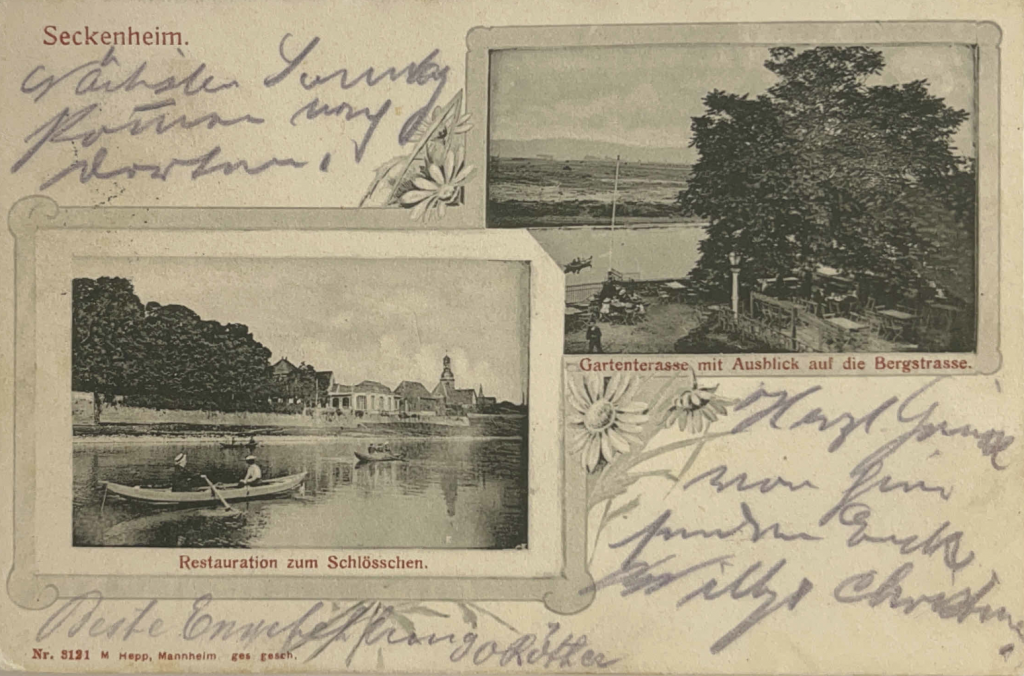 Seckenheim.
Nächsten Sonntag
kommen
dorten.
Gartenterasse mit Ausblick auf die Bergstrasse.
Restauration zum Schlösschen.
Herzl Grüße
von
Willy
Beste Empfehlung
Nr. 3121 M Hepp, Mannheim ges gesch.